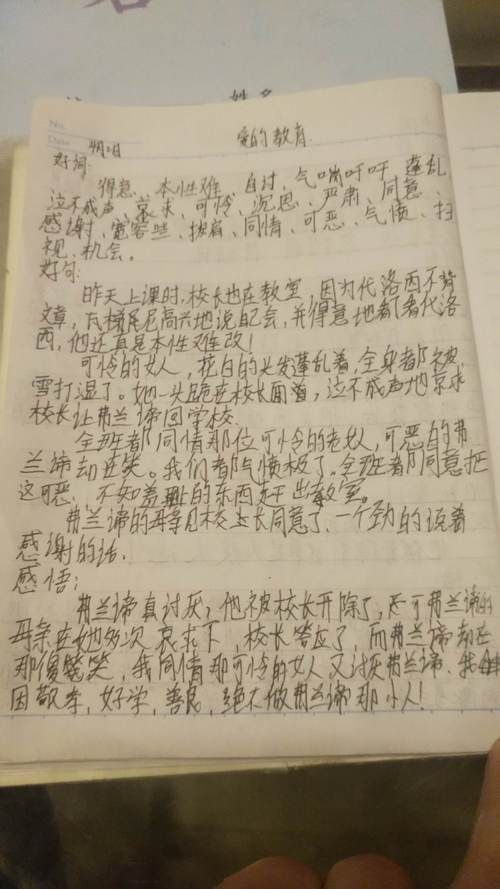 姓名
No.
Date 4月2日
爱的教育
好词:
得意、本性难、自讨、气喘吁吁、蓬乱
泣不成声、哀求、可怜、沉思、严肃、同意、
感谢、宽容、披肩、同情、可恶、气愤、扫
视、机会。
好句:
昨天上课时,校长也在教室,因为代洛西不背
文章,高兴地说配会,并得意地看看代洛
西,他还真是本性难改!
可怜的女人,花白的头发蓬乱着,全身都被
雪打湿了。她一头跪在校长面首,泣不成声地哀求
校长让弗兰谛回学校.
全班都同情那位可怜的老女人,可恶的弗
兰谛却还笑。我们都气愤极了。全班都同意把
这可恶、不知羞耻的东西赶出教室。
弗兰谛的母亲见校长同意了,一个劲的说着
感谢的话.
感悟:
弗兰谛真讨厌,他被校长开除了,还可弗兰谛的
母亲在她多次哀求下,校长答应了,而弗兰谛却在
那傻笑,我同情那可怜的女人又讨厌弗兰谛,我
因敬孝,好学,善良,绝不做弗兰谛那小人!